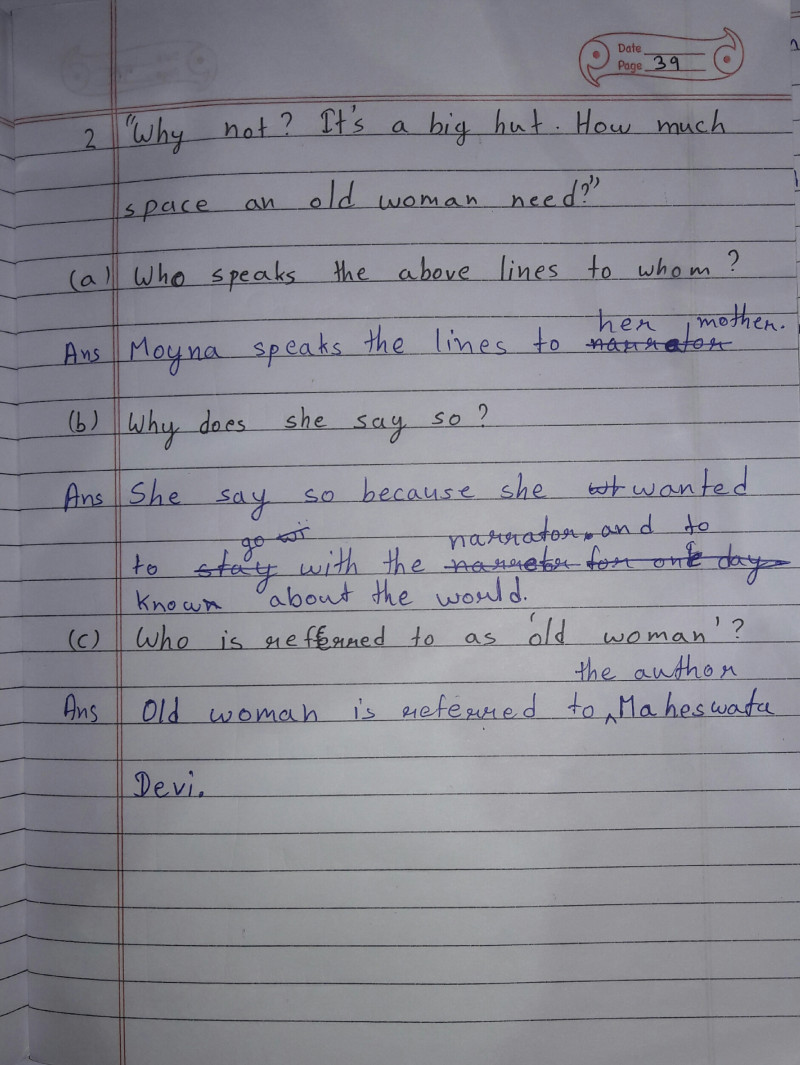 Date
Page 39
2 "Why not? It's a big hut. How much
space an old woman need?"
(a) Who speaks the above lines to whom?
her mother.
Ans Moyna speaks the lines to narrator
(b) Why does she say so?
Ans She say so because she wanted
go narrator and to
to stay with the for one day
known about the world.
(c) Who is referred to as 'old woman'?
the author
Ans Old woman is referred to ^ Maheswata
Devi.